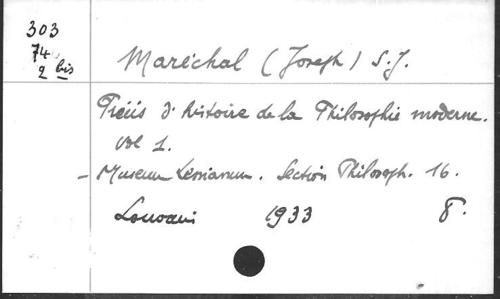 303
74
2 bis
Maréchal (Joseph) S.J.
Précis d'histoire de la Philosophie moderne.
vol 1.
- Museum Lessianum. Section Philosoph. 16.
Louvain 1933 8.